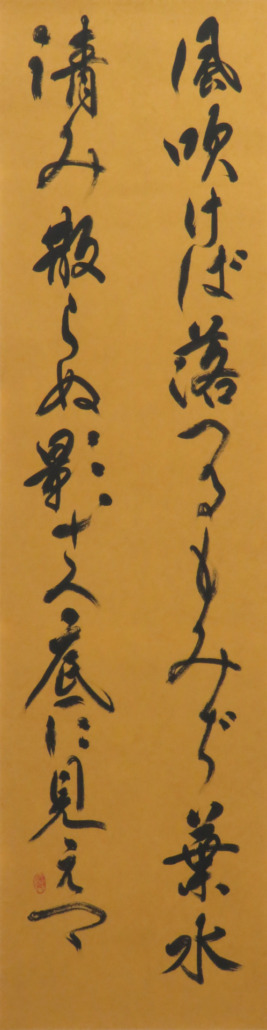 風吹けば落つるもみぢ葉水
清み散らぬ影さへ底に見えつつ